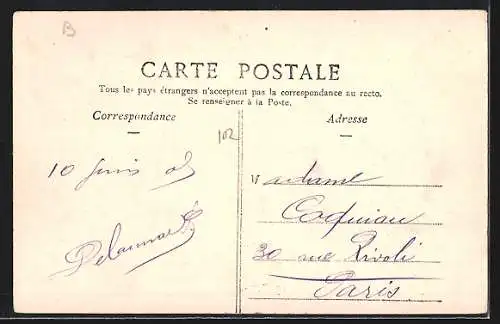 B
CARTE POSTALE
Tous les pays étrangers n'acceptent pas la correspondance au recto.
Se renseigner à la Poste.
Correspondance
Adresse
102
10 Juin 05
Madame
Coquiau
30 rue Rivoli
Paris